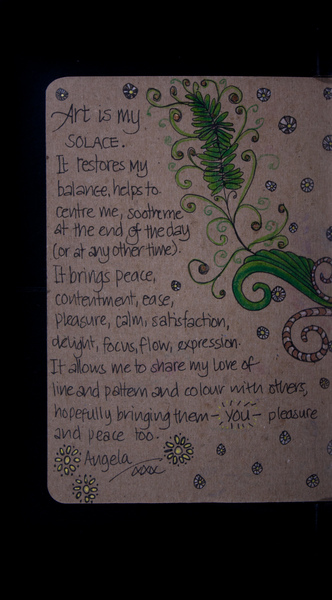 Art is my
SOLACE.
It restores my
balance, helps to
centre me, soothe me
at the end of the day
(or at any other time).
It brings peace,
contentment, ease,
pleasure, calm, satisfaction,
delight, focus, flow, expression.
It allows me to share my love of
line and pattern and colour with others,
hopefully bringing them - you - pleasure
and peace too.
Angela
xxxx